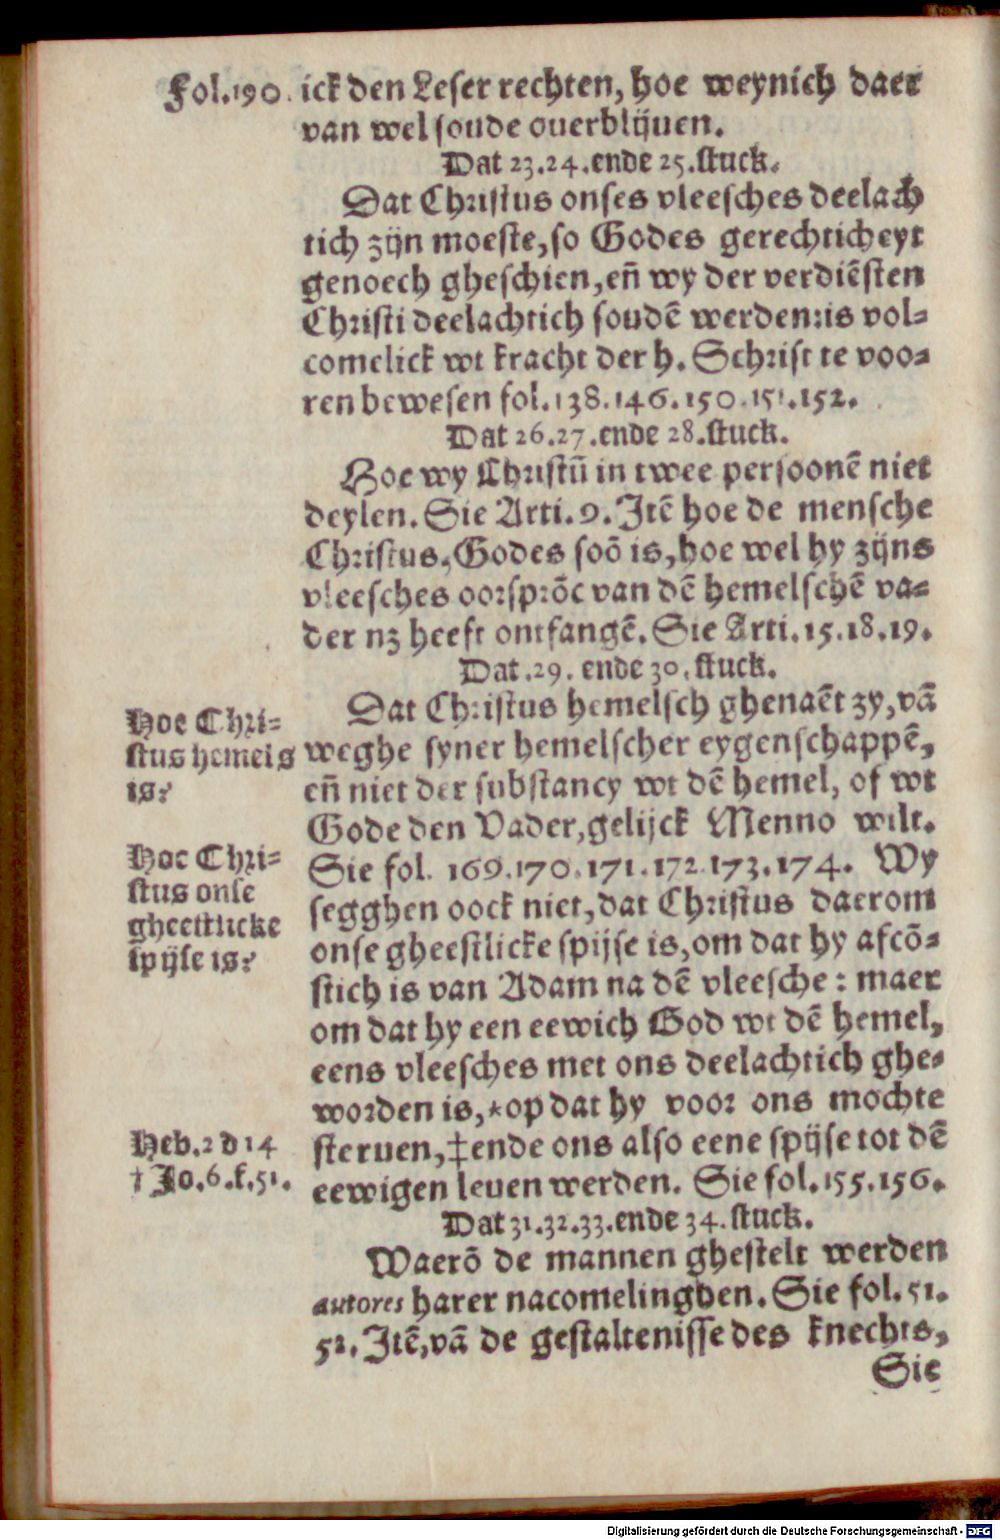 Fol.190. ick den Leser rechten, hoe weynich daer
van wel soude ouerblijuen.
Dat 23.24.ende 25.stuck.
Dat Christus onses vleesches deelach
tich zijn moeste, so Godes gerechticheyt
genoech gheschien, eñ wy der verdiẽsten
Christi deelachtich soudẽ werden:is vol-
comelick wt kracht der h. Schrift te voo-
ren bewesen fol.138.146.150.151.152.
Dat 26.27.ende 28.stuck.
Hoe wy Christũ in twee persoonẽ niet
deylen. Sie Arti.9. Itẽ hoe de mensche
Christus, Godes soõ is, hoe wel hy zijns
vleesches oorsprõc van dẽ hemelschẽ va-
der nz heeft ontfangẽ. Sie Arti.15.18.19.
Dat.29. ende 30.stuck.
Dat Christus hemelsch ghenaẽt zy, vã
weghe syner hemelscher eygenschappẽ,
eñ niet der substancy wt dẽ hemel, of wt
Gode den Vader, gelijck Menno wilt.
Sie fol. 169.170.171.172.173.174. Wy
segghen oock niet, dat Christus daerom
onse gheestlicke spijse is, om dat hy afcõ-
stich is van Adam na dẽ vleesche: maer
om dat hy een eewich God wt dẽ hemel,
eens vleesches met ons deelachtich ghe-
worden is, *op dat hy voor ons mochte
steruen, ‡ende ons also eene spijse tot dẽ
eewigen leuen werden. Sie fol.155.156.
Dat 31.32.33.ende 34.stuck.
Waerõ de mannen ghestelt werden
autores harer nacomelingden. Sie fol.51.
52. Itẽ, vã de gestaltenisse des knechts,
Sie
Hoe Chri-
stus hemels
is?
Hoe Chri-
stus onse
gheestlicke
spijse is?
Heb.2 d 14
† Jo.6.f.51.
Digitalisierung gefördert durch die Deutsche Forschungsgemeinschaft - DFG